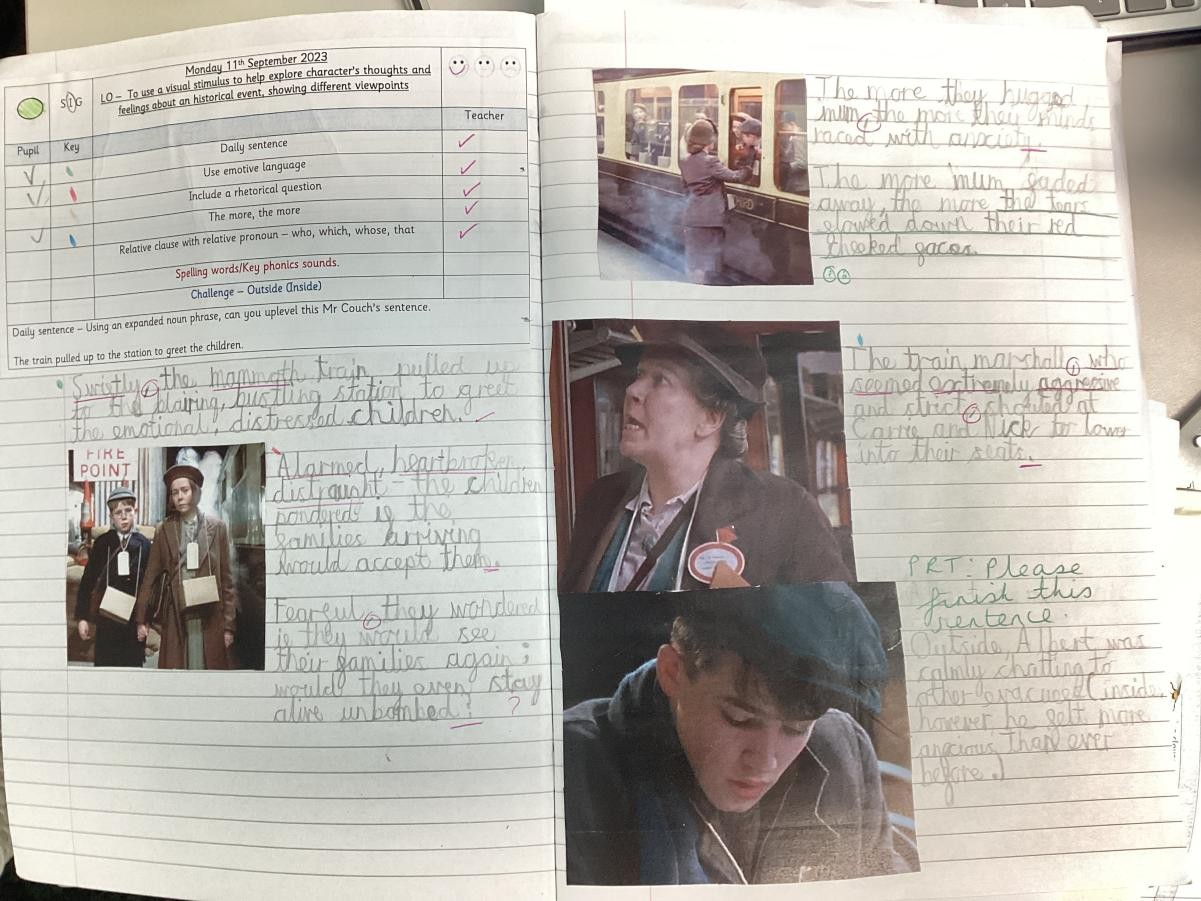 Monday 11th September 2023
SIG
LO – To use a visual stimulus to help explore character's thoughts and
feelings about an historical event, showing different viewpoints
Teacher
Pupil
Key
Daily sentence
Use emotive language
Include a rhetorical question
The more, the more
Relative clause with relative pronoun – who, which, whose, that
Spelling words/Key phonics sounds.
Challenge – Outside (Inside)
Daily sentence – Using an expanded noun phrase, can you uplevel this Mr Couch's sentence.
The train pulled up to the station to greet the children.
Swiftly, the mammoth train pulled up
to the blairing, bustling station to greet
the emotional, distressed children.
FIRE
POINT
Alarmed, heartbroken,
distraught - the children
pondered if the
families arriving
would accept them.
Fearful, they wondered
if they would see
their families again;
would they even stay
alive unbombed?
?
The more they hugged
mum, the more they minds
raced with anxiety.
The more mum faded
away, the more the tears
flowed down their red
cheeked faces.
THIRD
The train marshall, who
seemed extremely aggressive
and strict, shouted at
Carrie and Nick to lower
into their seats.
PRT: Please
finish this
sentence.
Outside, Albert was
calmly chatting to
other evacuees (inside,
however, he felt more
ancious than ever
before.)